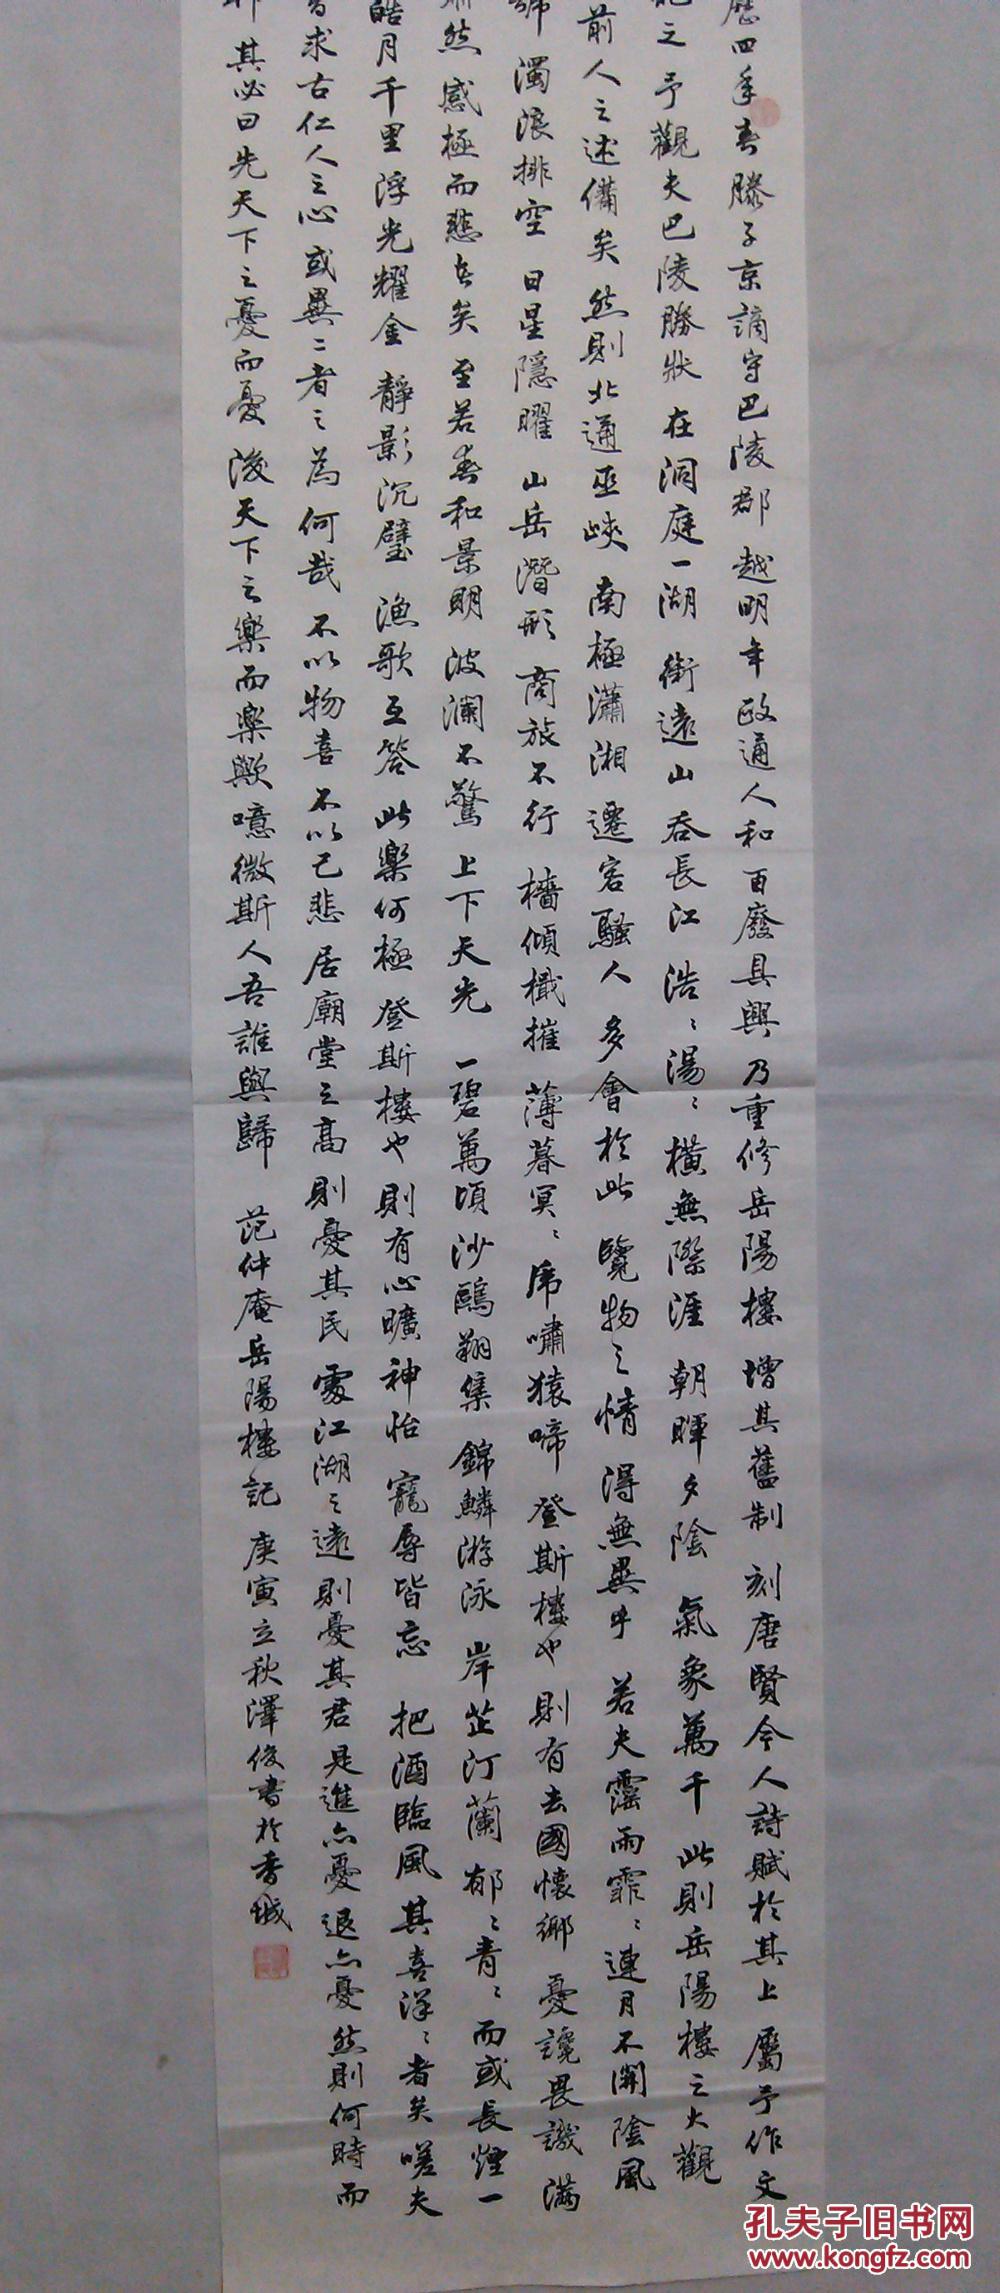 歷四年春滕子京謫守巴陵郡越明年政通人和百廢具興乃重修岳陽樓增其舊制刻唐賢今人詩賦於其上屬予作文
記之予觀夫巴陵勝狀在洞庭一湖銜遠山吞長江浩〻湯〻橫無際涯朝暉夕陰氣象萬千此則岳陽樓之大觀
前人之述備矣然則北通巫峽南極瀟湘遷客騷人多會於此覽物之情得無異乎若夫霪雨霏〻連月不開陰風
號濁浪排空日星隱曜山岳潛形商旅不行檣傾檝摧薄暮冥〻虎嘯猿啼登斯樓也則有去國懷鄉憂讒畏譏滿
然感極而悲者矣至若春和景明波瀾不驚上下天光一碧萬頃沙鷗翔集錦鱗游泳岸芷汀蘭郁〻青〻而或長煙一
皓月千里浮光耀金靜影沉璧漁歌互答此樂何極登斯樓也則有心曠神怡寵辱皆忘把酒臨風其喜洋〻者矣嗟夫
嘗求古仁人之心或異二者之為何哉不以物喜不以己悲居廟堂之高則憂其民處江湖之遠則憂其君是進亦憂退亦憂然則何時而
耶其必曰先天下之憂而憂後天下之樂而樂歟噫微斯人吾誰與歸 范仲庵岳陽樓記 庚寅立秋澤俊書於香城
孔夫子旧书网
www.kongfz.com